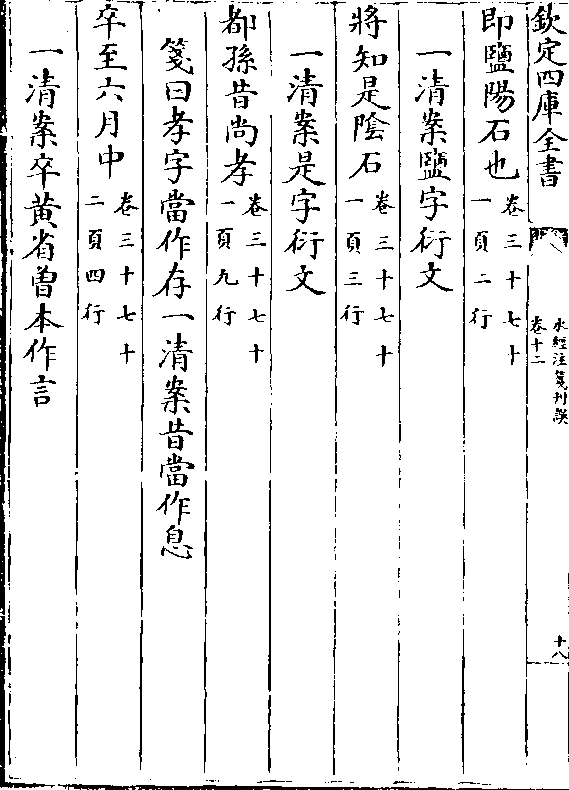 欽定四庫全書
水經注箋刋誤
卷十二
十八
即鹽陽石也卷三十七十
一頁二行
一清案鹽字衍文
將知是陰石卷三十七十
一頁三行
一清案是字衍文
都孫昔尚孝卷三十七十
一頁九行
箋曰孝字當作存一清案昔當作息
卒至六月中卷三十七十
二頁四行
一清案卒黄省曽本作言